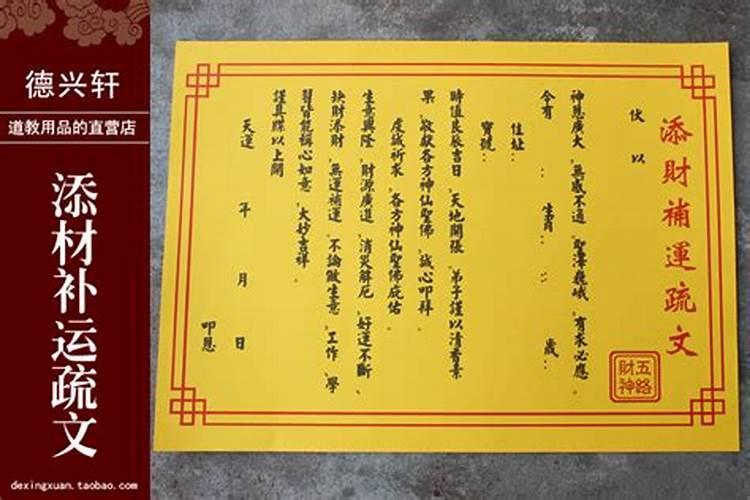 德兴轩
道教用品的直营店
添材补运疏文
dexingxuan.taobao.com
添財補運疏文
五路
財神
伏以
神恩廣大，無感不通，聖澤巍峨，有求必應。
今有：生肖：：歲：
住址：
寶號：
時值良辰吉日，天地開張，弟子謹以清香素
果，敬獻各方神仙聖佛，誠心叩拜。
虔誠祈求，各方神仙聖佛庇佑。
生意興隆，財源廣進，消災解厄，好運不斷、
缺財添財，無運補運，不論做生意，工作，學
習皆能稱心如意，大妙吉祥。
謹具牒以上聞
天運 年 月 日
叩恩